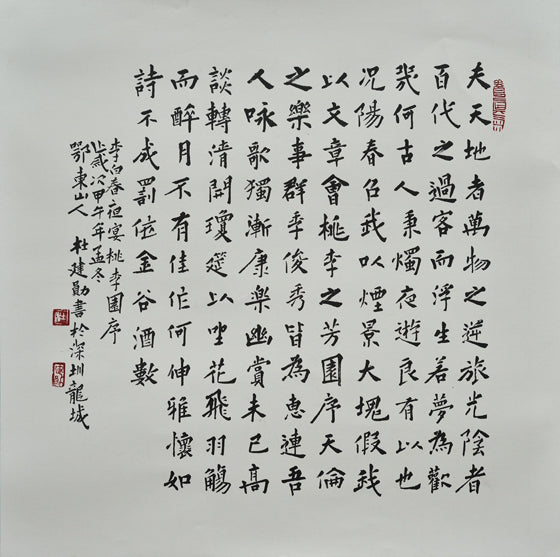 夫天地者萬物之逆旅光陰者
百代之過客而浮生若夢為歡
幾何古人秉燭夜遊良有以也
況陽春召我以煙景大塊假我
以文章會桃李之芳園序天倫
之樂事群季俊秀皆為惠連吾
人咏歌獨漸康樂幽賞未已高
談轉清開瓊筵以坐花飛羽觴
而醉月不有佳作何伸雅懷如
詩不成罰依金谷酒數
李白春夜宴桃李園序
歲次甲午年孟冬
鄂東山人 杜建勛書於深圳龍城